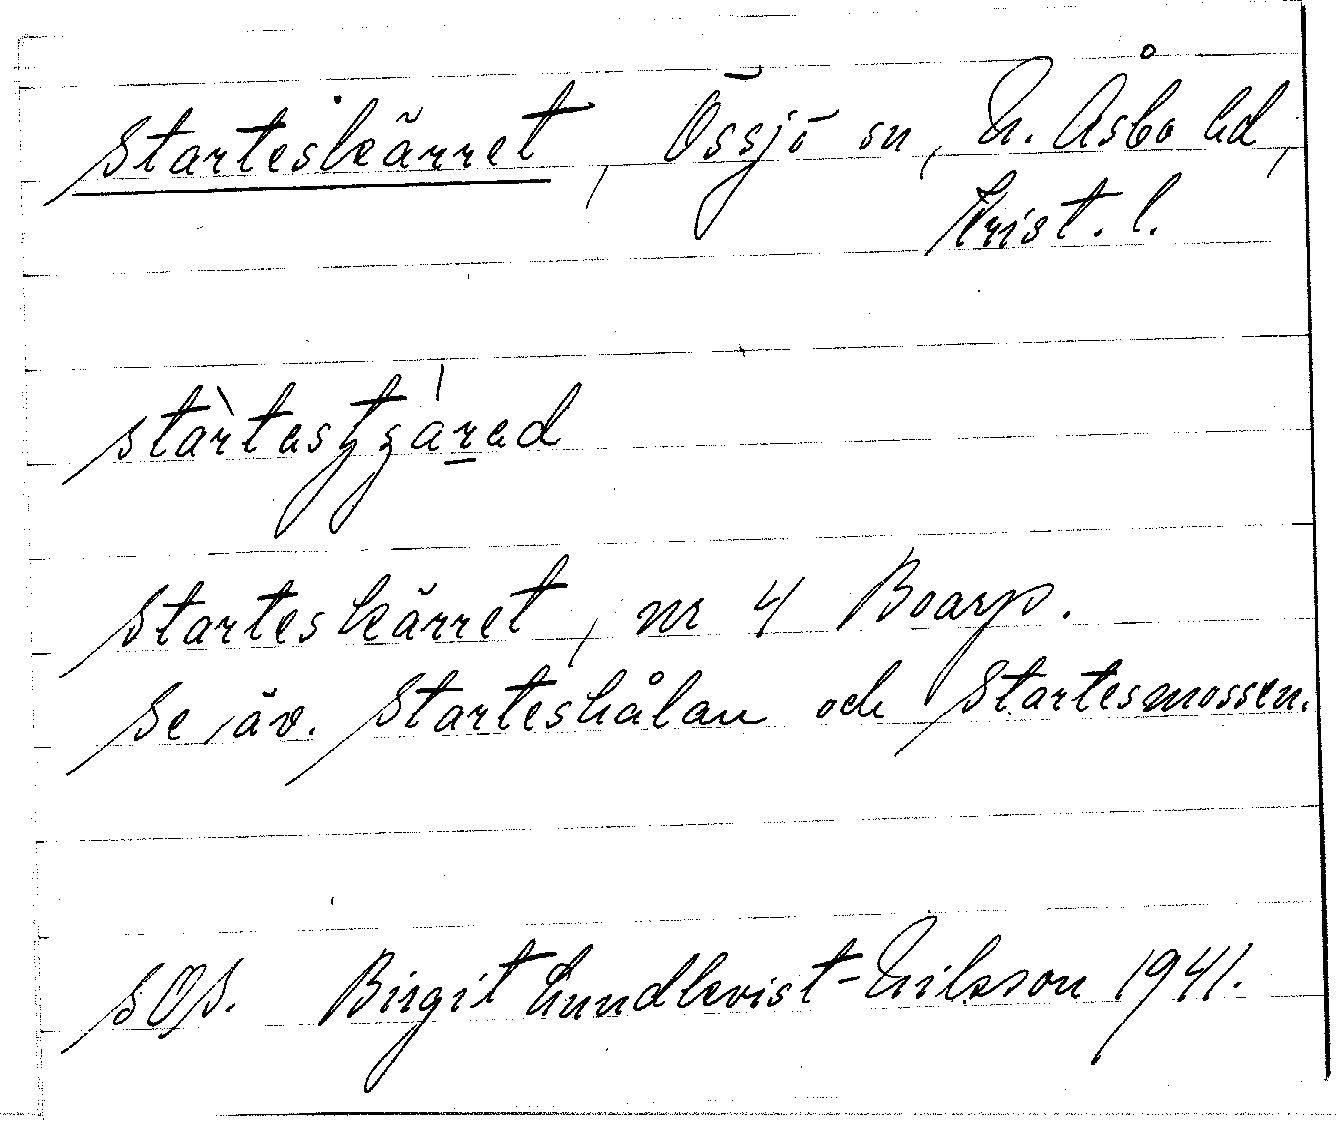 Starteskärret, Össjö sn, N. Åsbo hd,
Krist. l.
Starteskärret, nr 4 Boarp.
Se äv. Starteshålan och Startesmossen.
SOS. Birgit Lundkvist-Nilsson 1941.